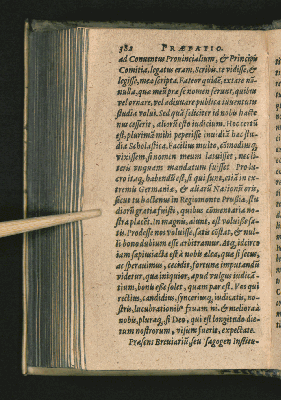 382 PRÆFATIO.
ad Conuentus Prouincialium, & Principũ
Comitia, legatus eram. Scribis te vidisse, &
legisse, mea scripta. Fateor quidẽ, extare nõ-
nulla, quæ meũ præ se nomen ferunt, quibus
vel ornare, vel adiuuare publica iuuentutis
studia volui. Sed quã feliciter id nobis hacte-
nus cesserit, aliorũ esto iudicium. Hoc certũ
est, plurimũ mihi peperisse inuidiæ hæc stu-
dia Scholastica. Facilius multo, cõmodiusq́;
vixissem, si nomen meum latuisset, nec li-
teris vnquam mandatum fuisset. Pro lu-
cro itaq; habendũ est, si qui sunt, etiã in ex-
tremis Germaniæ, & aliarũ Nationũ oris,
sicut tu hospes in Regiomonte Prussiæ, stu-
diosis grati fuisti, quibus cõmentaria no-
stra placẽt. In magnis, aiunt, est voluisse sa-
tis. Prodesse nos voluisse, satis cõstat, & nul-
li bono dubium esse arbitramur. Atq; id circo
iam sapius iacta est à nobis alea, quæ si secus,
ac sperauimus, cecidit, fortunæ imputandũ
videtur, quæ iniquior, apud vulgus iudica-
tium, bonis esse solet, quam par est. Vos qui
rectius, candidius, synceriusq; iudicatis, no-
stris, lucubrationibus fruamini. & meliora à
nobis, pluraq;, si Deo, qui est longitudo die-
rum nostrorum, visum fuerit, expectate.
Præsens Breuiarij, seu Isagogen Institu-